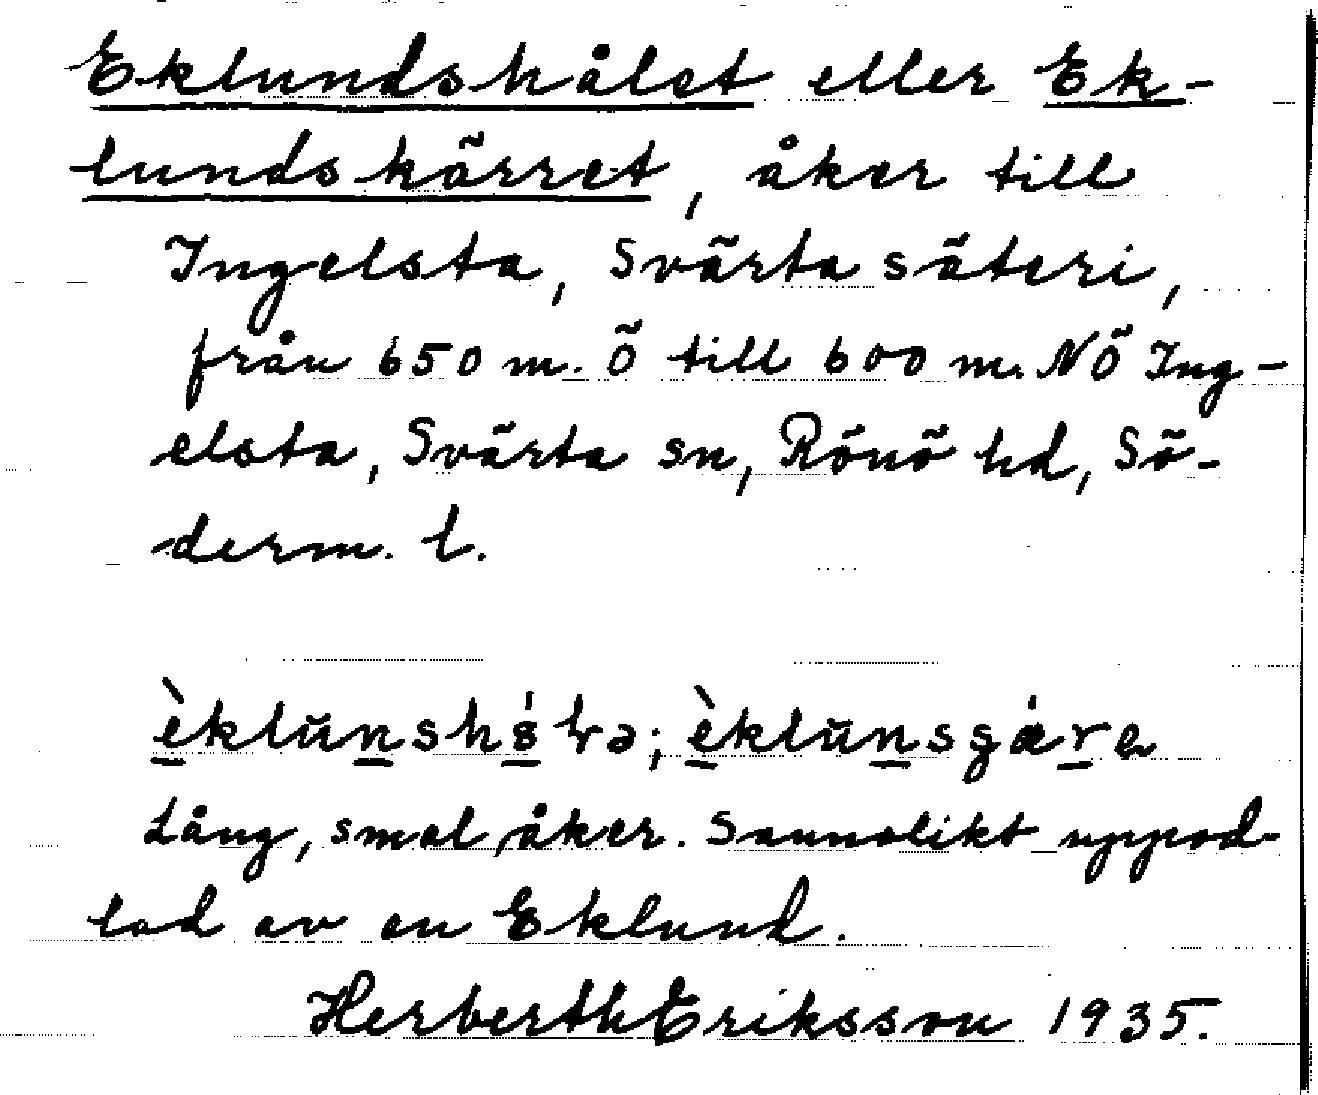 Eklundshålet eller Ek-
lundskärret, åker till
Ingelsta, Svärta säteri,
från 650 m. Ö till 600 m. NÖ Ing-
elsta, Svärta sn, Rönö hd, Sö-
derm. l.
Lång, smal åker. Sannolikt uppod-
lad av en Eklund.
Herberth Eriksson 1935.